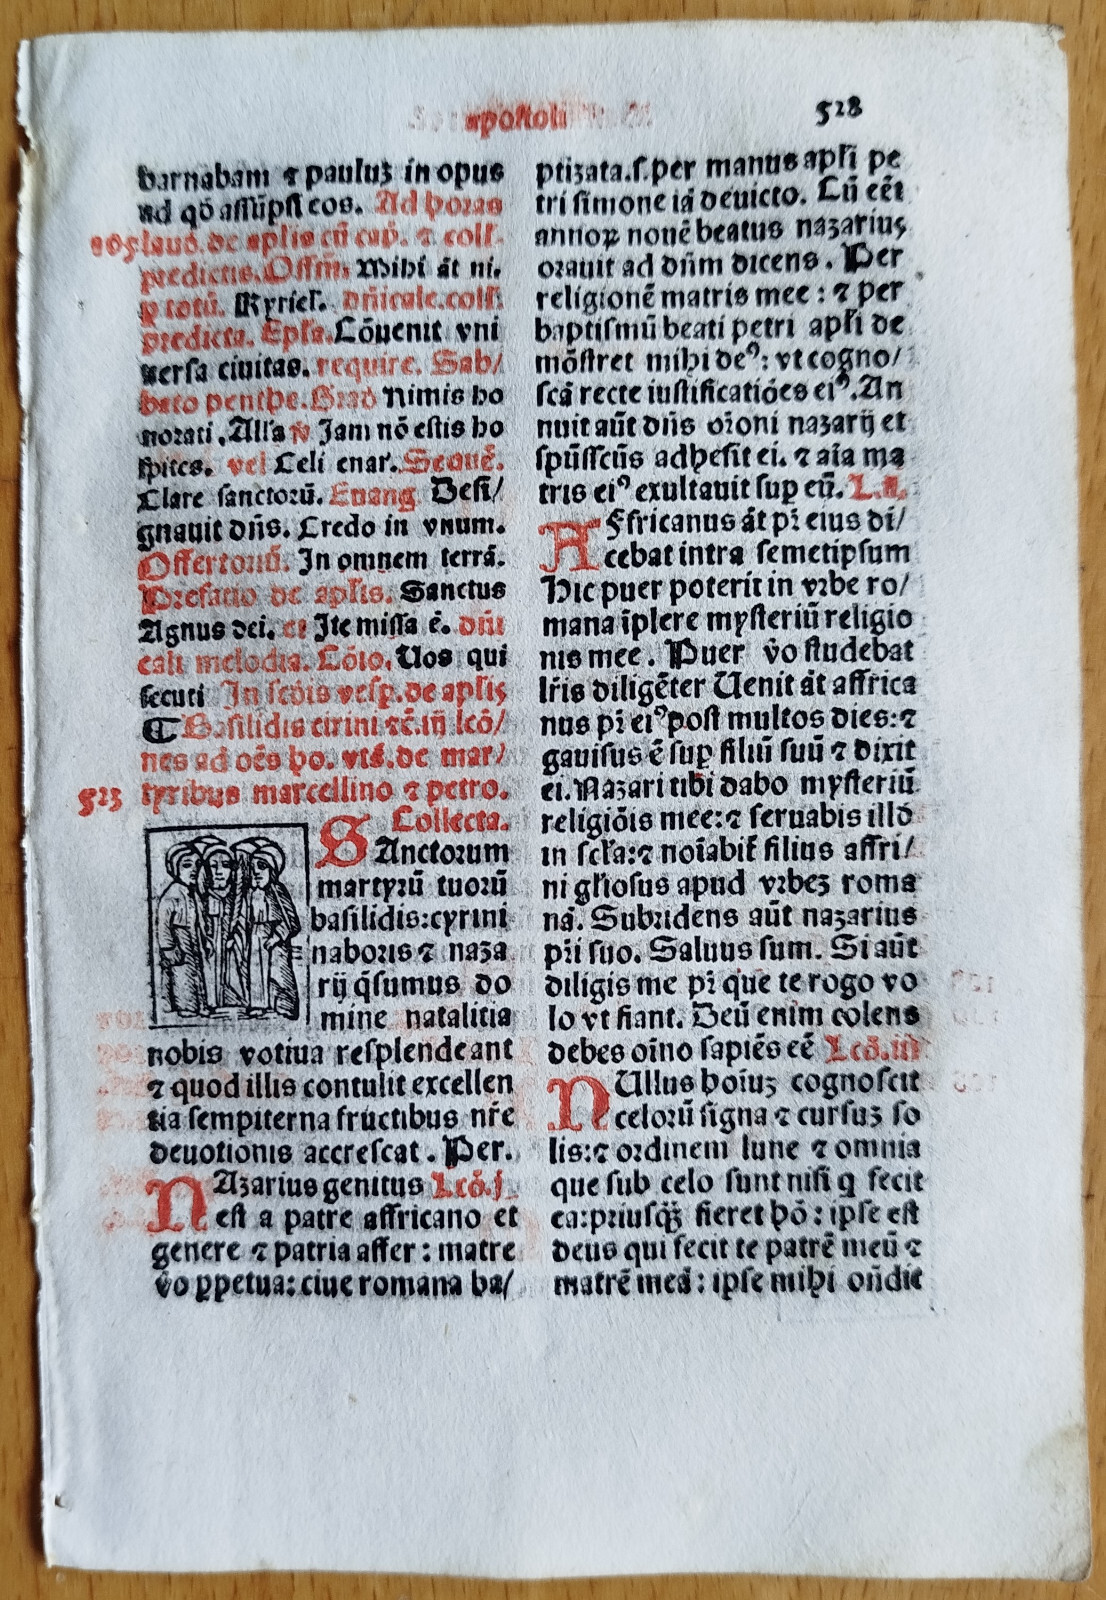 apostoli
528
barnabam ⁊ pauluꝫ in opus
ad qđ assūpsi eos. Ad horas
laud. de aplis cū cap. ⁊ coll.
predictis. Offm̄. Mihi āt ni.
ꝑ totū. Kyriel. dn̄icale. coll.
predicta. Epl'a. Cōuenit vni
uersa ciuitas. require. Sab/
bato penthe. Grad Nimis ho
norati. All'a ꝟ Jam nō estis ho
spites. vel Celi enar. Sequē.
Clare sanctorū. Euang Desi/
gnauit dn̄s. Credo in vnum.
Offertoriū. In omnem terrā.
Prefatio de aplis. Sanctus
Agnus dei. et Ite missa ē. dn̄i
cali melodia. Cōio. Uos qui
secuti In scd̄is vesp. de aplis
¶ Basilidis cirini ⁊c̄. iij lcō/
nes ad oēs ho. vts̄. de mar/
523 tyribus marcellino ⁊ petro.
Collecta.
SAnctorum
martyrū tuorū
basilidis: cyrini
naboris ⁊ naza
rij q̄sumus do
mine natalitia
nobis votiua resplendeant
⁊ quod illis contulit excellen
tia sempiterna fructibus nr̄e
deuotionis accrescat. Per.
NAzarius genitus Lcō. j
est a patre affricano et
genere ⁊ patria affer: matre
v̄o ꝑpetua: ciue romana ba/
ptizata. s. per manus apl'i pe
tri simone iā deuicto. Cū eēt
annoꝝ nouē beatus nazarius
orauit ad dn̄m dicens. Per
religionē matris mee: ⁊ per
baptismū beati petri apl'i de
mōstret mihi deꝰ: vt cogno/
scā recte iustificatiōes eiꝰ. An
nuit aūt dn̄s or̄oni nazarij et
spūsscūs adhesit ei. ⁊ aīa ma
tris eiꝰ exultauit sup eū.
Affricanus āt pr̄ eius di/
cebat intra semetipsum
Hic puer poterit in vrbe ro/
mana īplere mysteriū religio
nis mee. Puer v̄o studebat
lr̄is diligēter Uenit āt affrica
nus pr̄ eiꝰ post multos dies: ⁊
gauisus ē sup filiū suū ⁊ dixit
ei. Nazari tibi dabo mysteriū
religiōis mee: ⁊ seruabis illō
in scl'a: ⁊ noīabit̄ filius affri/
ni gl'iosus apud vrbeꝫ roma
nā. Subridens aūt nazarius
pr̄i suo. Saluus sum. Si aūt
diligis me pr̄ que te rogo vo
lo vt fiant. Deū enim colens
debes oīno sapiēs eē Lcō. iij
NUllus hoīuꝫ cognoscit
celorū signa ⁊ cursuꝫ so
lis: ⁊ ordinem lune ⁊ omnia
que sub celo sunt nisi q fecit
ea: priusq̄ꝫ fieret hō: ipse est
deus qui fecit te patrē meū ⁊
matrē meā: ipse mihi on̄dit